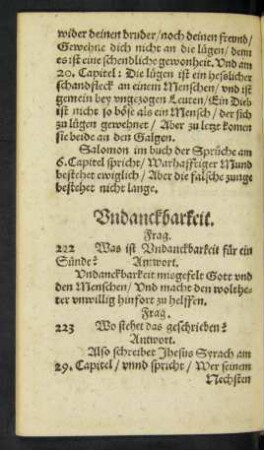 wider deinen bruder / noch deinen freund /
Gewehne dich nicht an die lügen / denn
es ist eine schendliche gewonheit. Vnd am
20. Capitel: Die lügen ist ein heslicher
schandfleck an einem Menschen / vnd ist
gemein bey vngezogen Leuten / Ein Dieb
ist nicht so böse als ein Mensch / der sich
zu lügen gewehnet / Aber zu letzt komen
sie beide an den Galgen.
Salomon im buch der Sprüche am
6. Capitel spricht / Warhafftiger Mund
bestehet ewiglich / Aber die falsche zunge
bestehet nicht lange.
Vndanckbarkeit.
Frag.
222 Was ist Vndanckbarkeit für ein
Sünde? Antwort.
Vndanckbarkeit misgefelt Gott vnd
den Menschen / Vnd macht den wolthe-
ter vnwillig hinfort zu helffen.
Frag.
223 Wo stehet das geschrieben?
Antwort.
Also schreibet Jhesus Syrach am
29. Capitel / vnnd spricht / Wer seinem
Nechsten